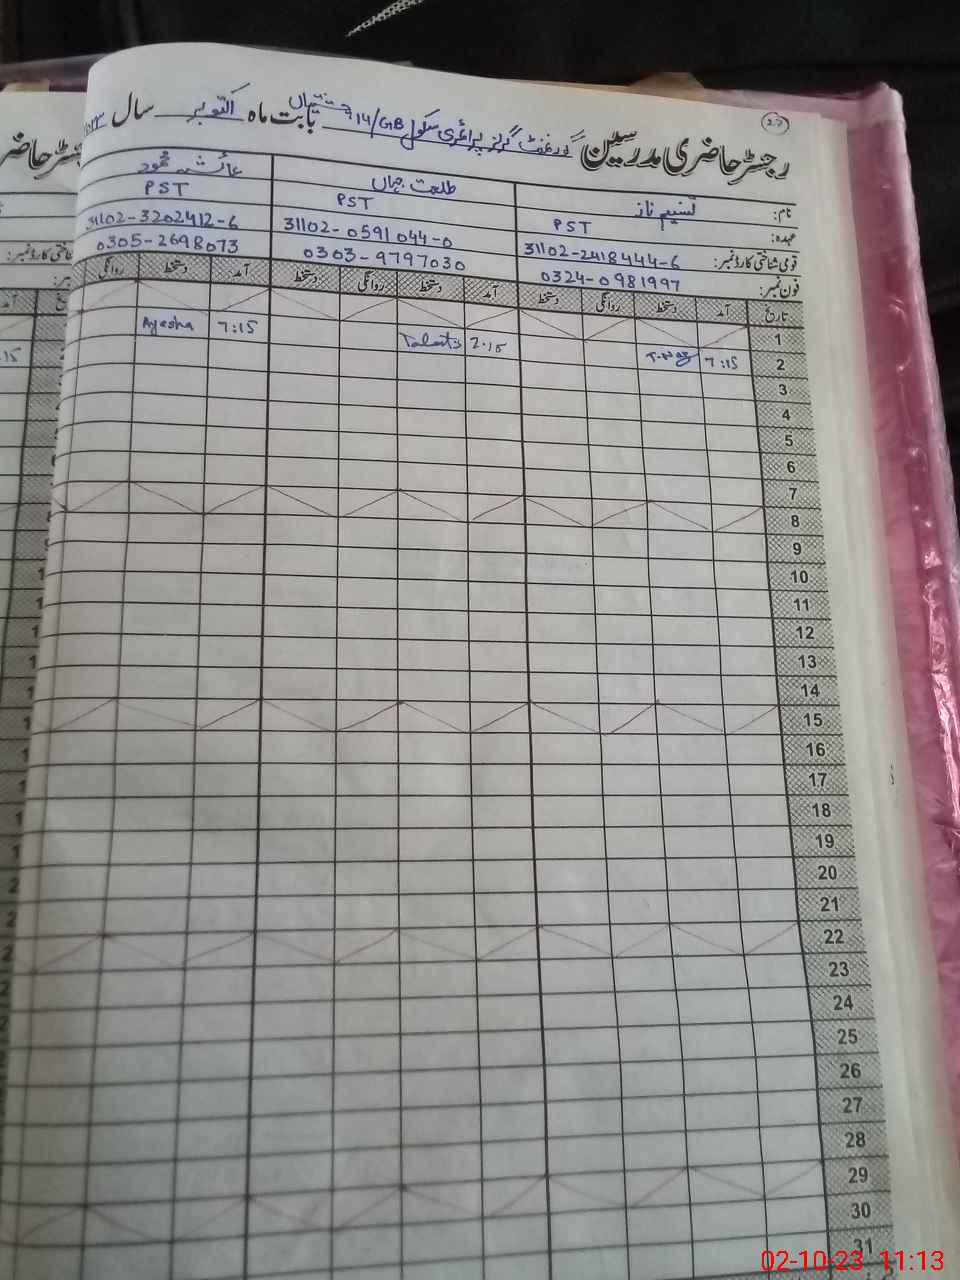 27
رجسٹر حاضری مدرسین گورنمنٹ گرلز پرائمری سکول 914/GB بابت ماہ اکتوبر سال
نام: تسنیم ناز طلعت جہاں عائشہ محمود
عہدہ: PST PST PST
قومی شناختی کارڈ نمبر: 31102-2418444-6 31102-0591044-0 31102-3202412-6
فون نمبر: 0324-0981997 0303-9797030 0305-2698073
تاریخ آمد دستخط روانگی دستخط آمد دستخط روانگی دستخط آمد دستخط روانگی
1
2 7:15 T.Naz 7:15 Ayesha
3
4
5
6
7
8
9
10
11
12
13
14
15
16
17
18
19
20
21
22
23
24
25
26
27
28
29
30
31
02-10-23 11:13